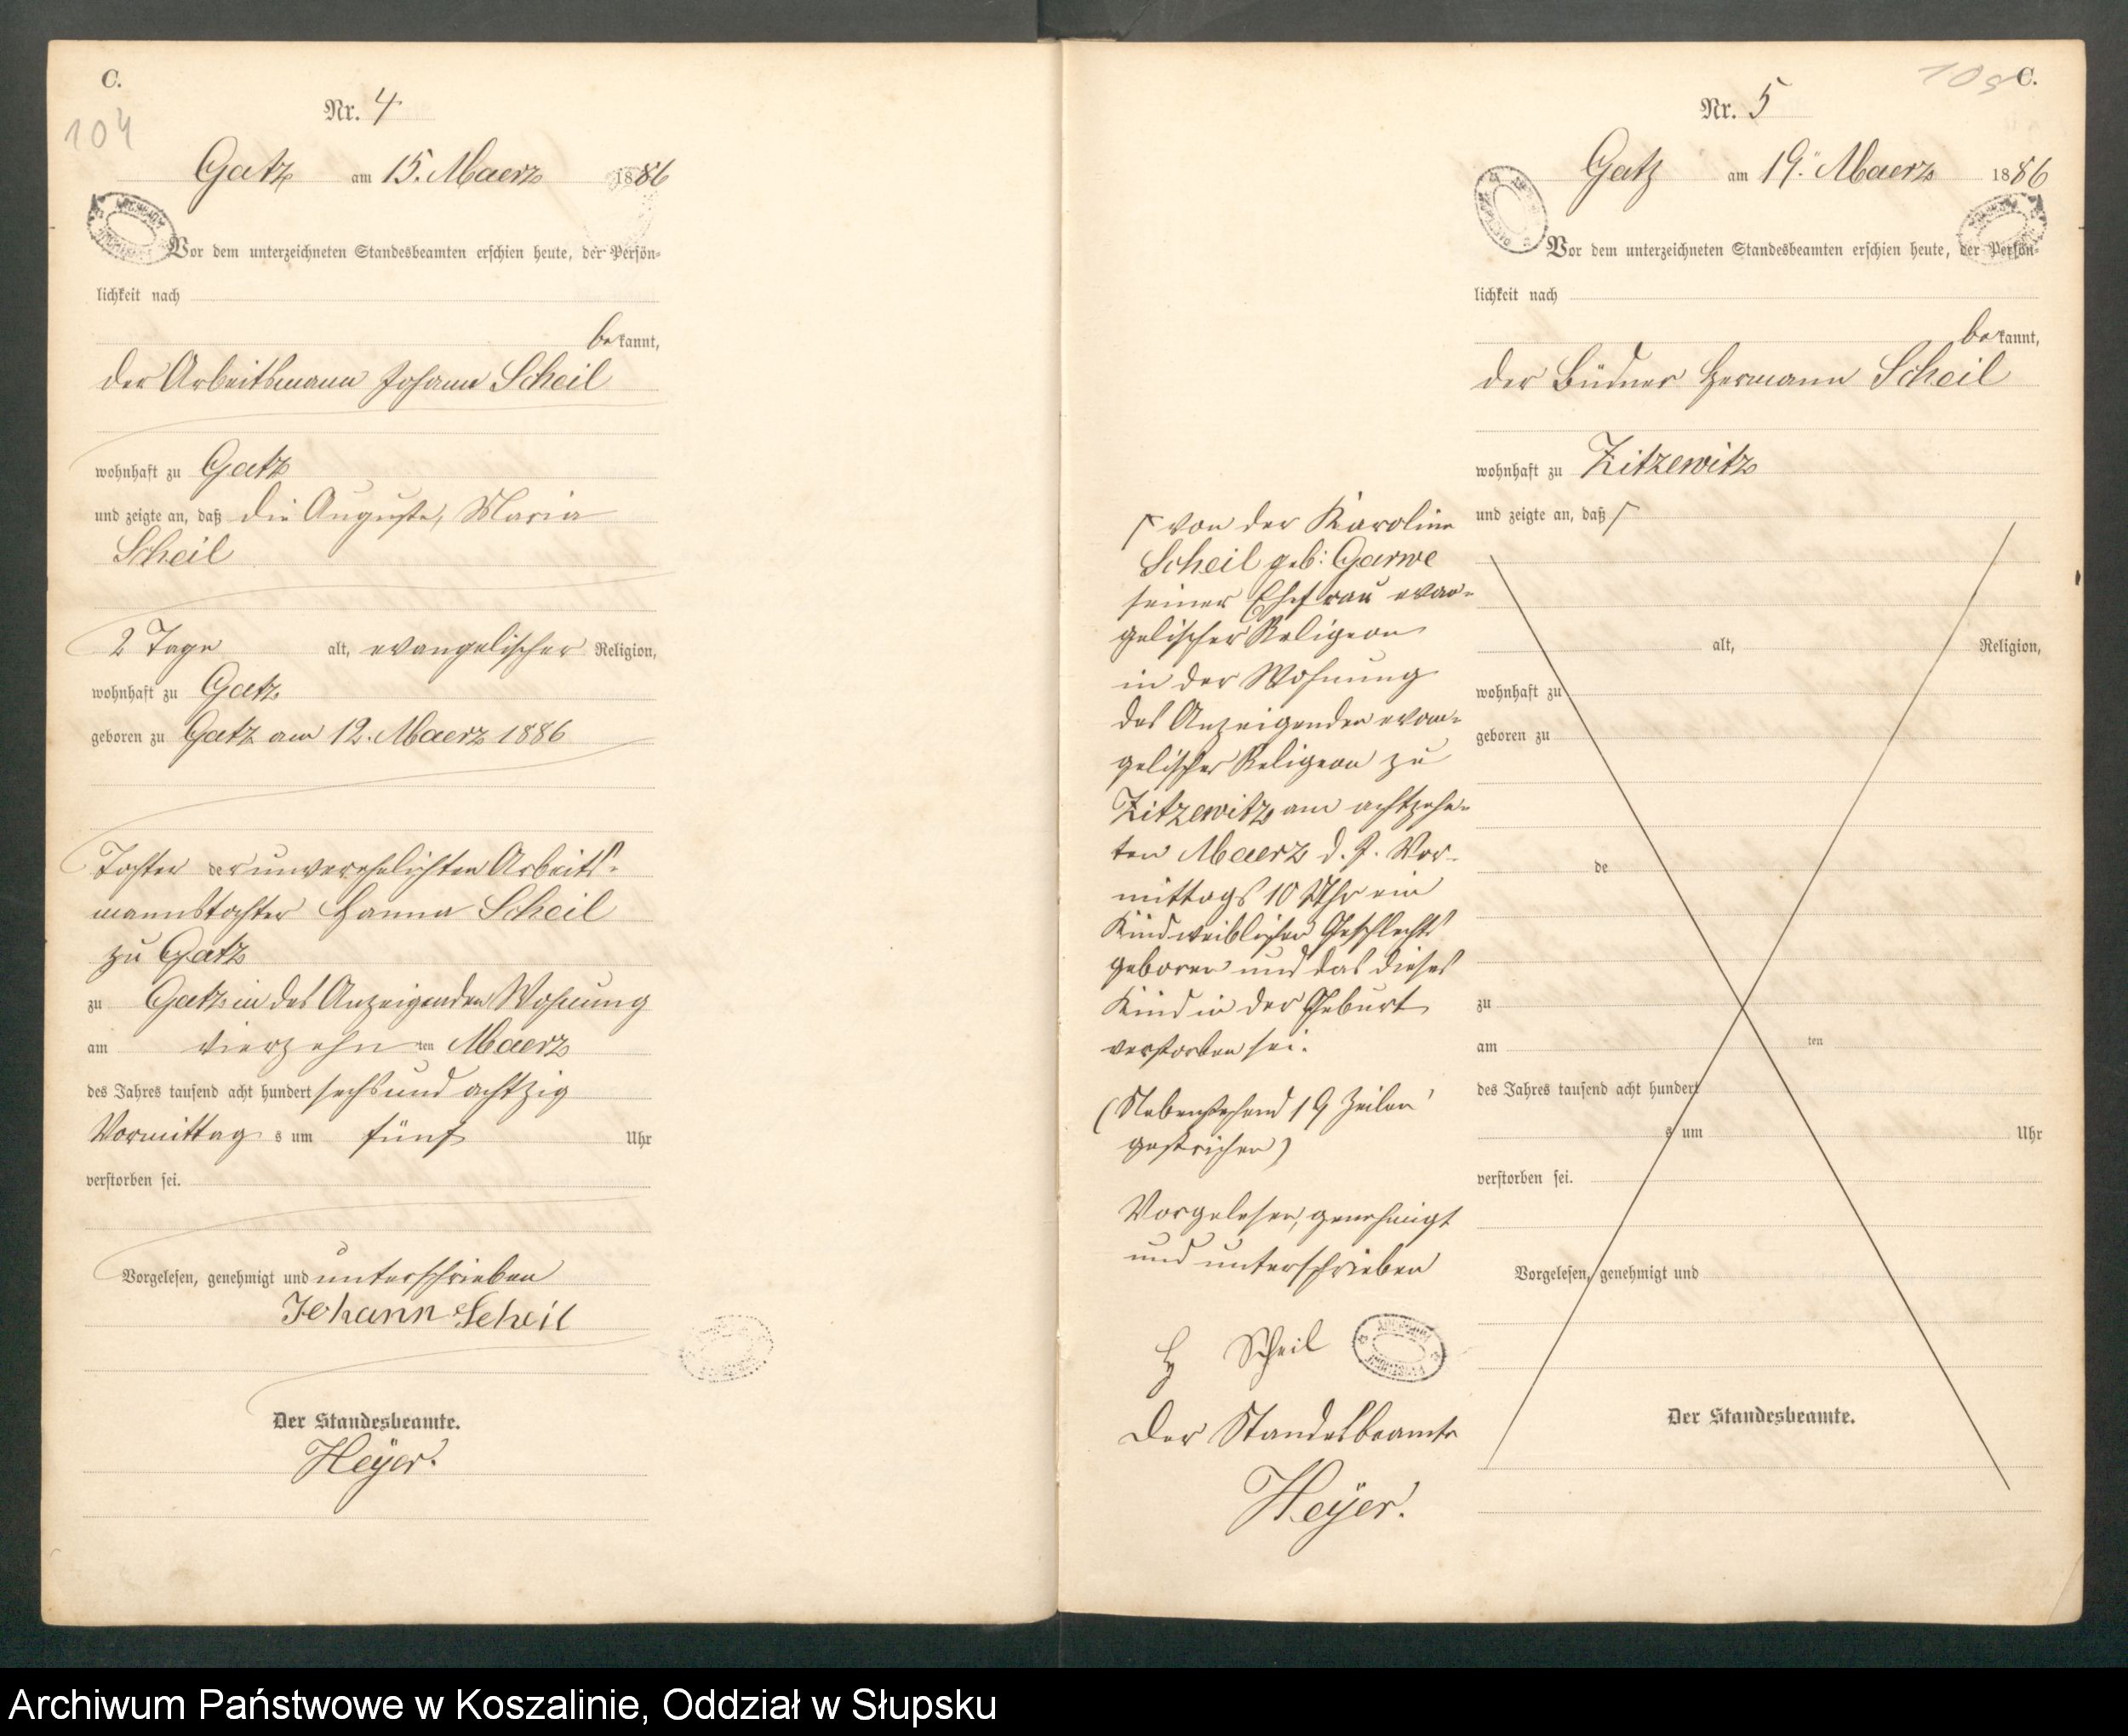 C.
104
Nr. 4
Gatz am 15. Maerz 1886
Vor dem unterzeichneten Standesbeamten erschien heute, der Persön-
lichkeit nach
bekannt,
der Arbeitsmann Johann Scheil
wohnhaft zu Gatz
und zeigte an, daß die Auguste, Maria
Scheil
2 Tage alt, evangelischer Religion,
wohnhaft zu Gatz
geboren zu Gatz am 12. Maerz 1886
Tochter der unverehelichten Arbeits-
mannstochter Hanna Scheil
zu Gatz
zu Gatz in des Anzeigenden Wohnung
am vierzehn ten Maerz
des Jahres tausend acht hundert sechs und achtzig
Vormittag s um fünf Uhr
verstorben sei.
Vorgelesen, genehmigt und unterschrieben
Johann Scheil
Der Standesbeamte.
Heÿer.
105
C.
Nr. 5
Gatz am 19. Maerz 1886
Vor dem unterzeichneten Standesbeamten erschien heute, der Persön-
lichkeit nach
bekannt,
der Büdner Hermann Scheil
wohnhaft zu Zitzewitz
und zeigte an, daß
von der Karoline
Scheil geb: Garwe
seiner Ehefrau evan-
gelischer Religion
in der Wohnung
des Anzeigenden evan-
gelischer Religion zu
Zitzewitz am achtzehn-
ten Maerz d. J. Vor-
mittags 10 Uhr ein
Kind weiblichen Geschlechts
geboren und das dieses
Kind in der Geburt
verstorben sei.
(Nebenstehend 19 Zeilen
gestrichen)
Vorgelesen, genehmigt
und unterschrieben
H Scheil
Der Standesbeamte
Heÿer.
alt, Religion,
wohnhaft zu
geboren zu
de
zu
am ten
des Jahres tausend acht hundert
s um Uhr
verstorben sei.
Vorgelesen, genehmigt und
Der Standesbeamte.
Archiwum Państwowe w Koszalinie, Oddział w Słupsku